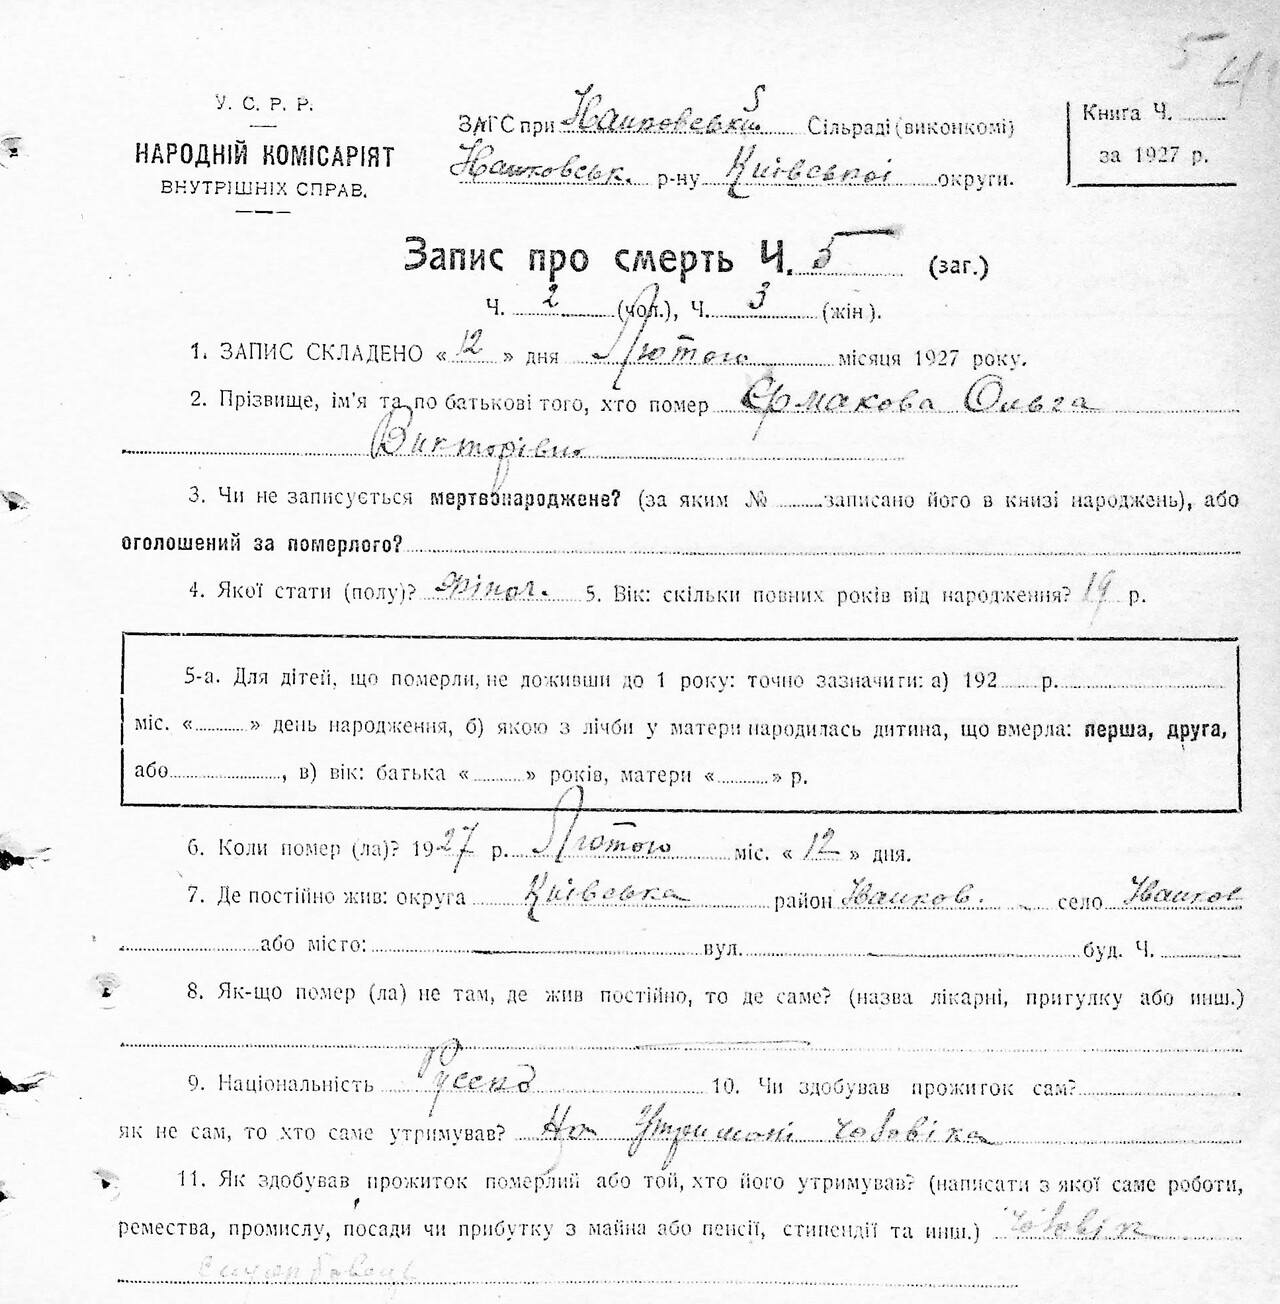 5
У. С. Р. Р.
НАРОДНІЙ КОМІСАРІЯТ
ВНУТРІШНІХ СПРАВ.
ЗАГС при Сільраді (виконкомі)
р-ну Київської округи.
Книга Ч.
за 1927 р.
Запис про смерть Ч. 5 (заг.)
Ч. 2 (чол.), Ч. 3 (жін).
1. ЗАПИС СКЛАДЕНО « 12 » дня Лютого місяця 1927 року.
2. Прізвище, ім'я та по батькові того, хто помер Єрмакова Ольга
Викторівна
3. Чи не записується мертвонароджене? (за яким № записано його в книзі народжень), або
оголошений за померлого?
4. Якої стати (полу)? жіноч. 5. Вік: скільки повних років від народження? 19 р.
5-а. Для дітей, що померли, не доживши до 1 року: точно зазначити: а) 192 р.
міс. « » день народження, б) якою з лічби у матери народилась дитина, що вмерла: перша, друга,
або , в) вік: батька « » років, матери « » р.
6. Коли помер (ла)? 1927 р. Лютого міс. « 12 » дня.
7. Де постійно жив: округа Київська район село
або місто: вул. буд. Ч.
8. Як-що помер (ла) не там, де жив постійно, то де саме? (назва лікарні, притулку або инш.)
9. Національність 10. Чи здобував прожиток сам?
як не сам, то хто саме утримував? На Утримані чоловіка
11. Як здобував прожиток померлий або той, хто його утримував? (написати з якої саме роботи,
ремества, промислу, посади чи прибутку з майна або пенсії, стипендії та инш.) чоловік